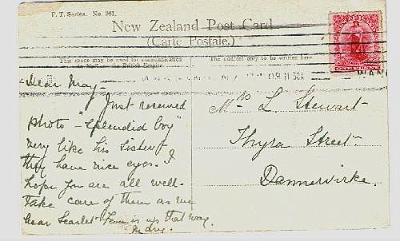 F. T. Series. No. 361.
New Zealand Post Card
(Carte Postale.)
This space may be used for communication
The address only to be written here
Dear May
I Just received
photo "Splendid boy"
very like his sister
they have nice eyes. I
hope you are all well.
Take care of them as we
hear Scarlet Fever is up that way.
Mrs L Stewart
Thyra Street
Dannevirke.